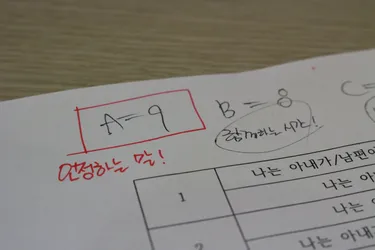 A=9
B = 8
C=
함께하는 시간!
인정하는 말!
1
나는 아내가/남편이
나는 아
나는 아
2
나는